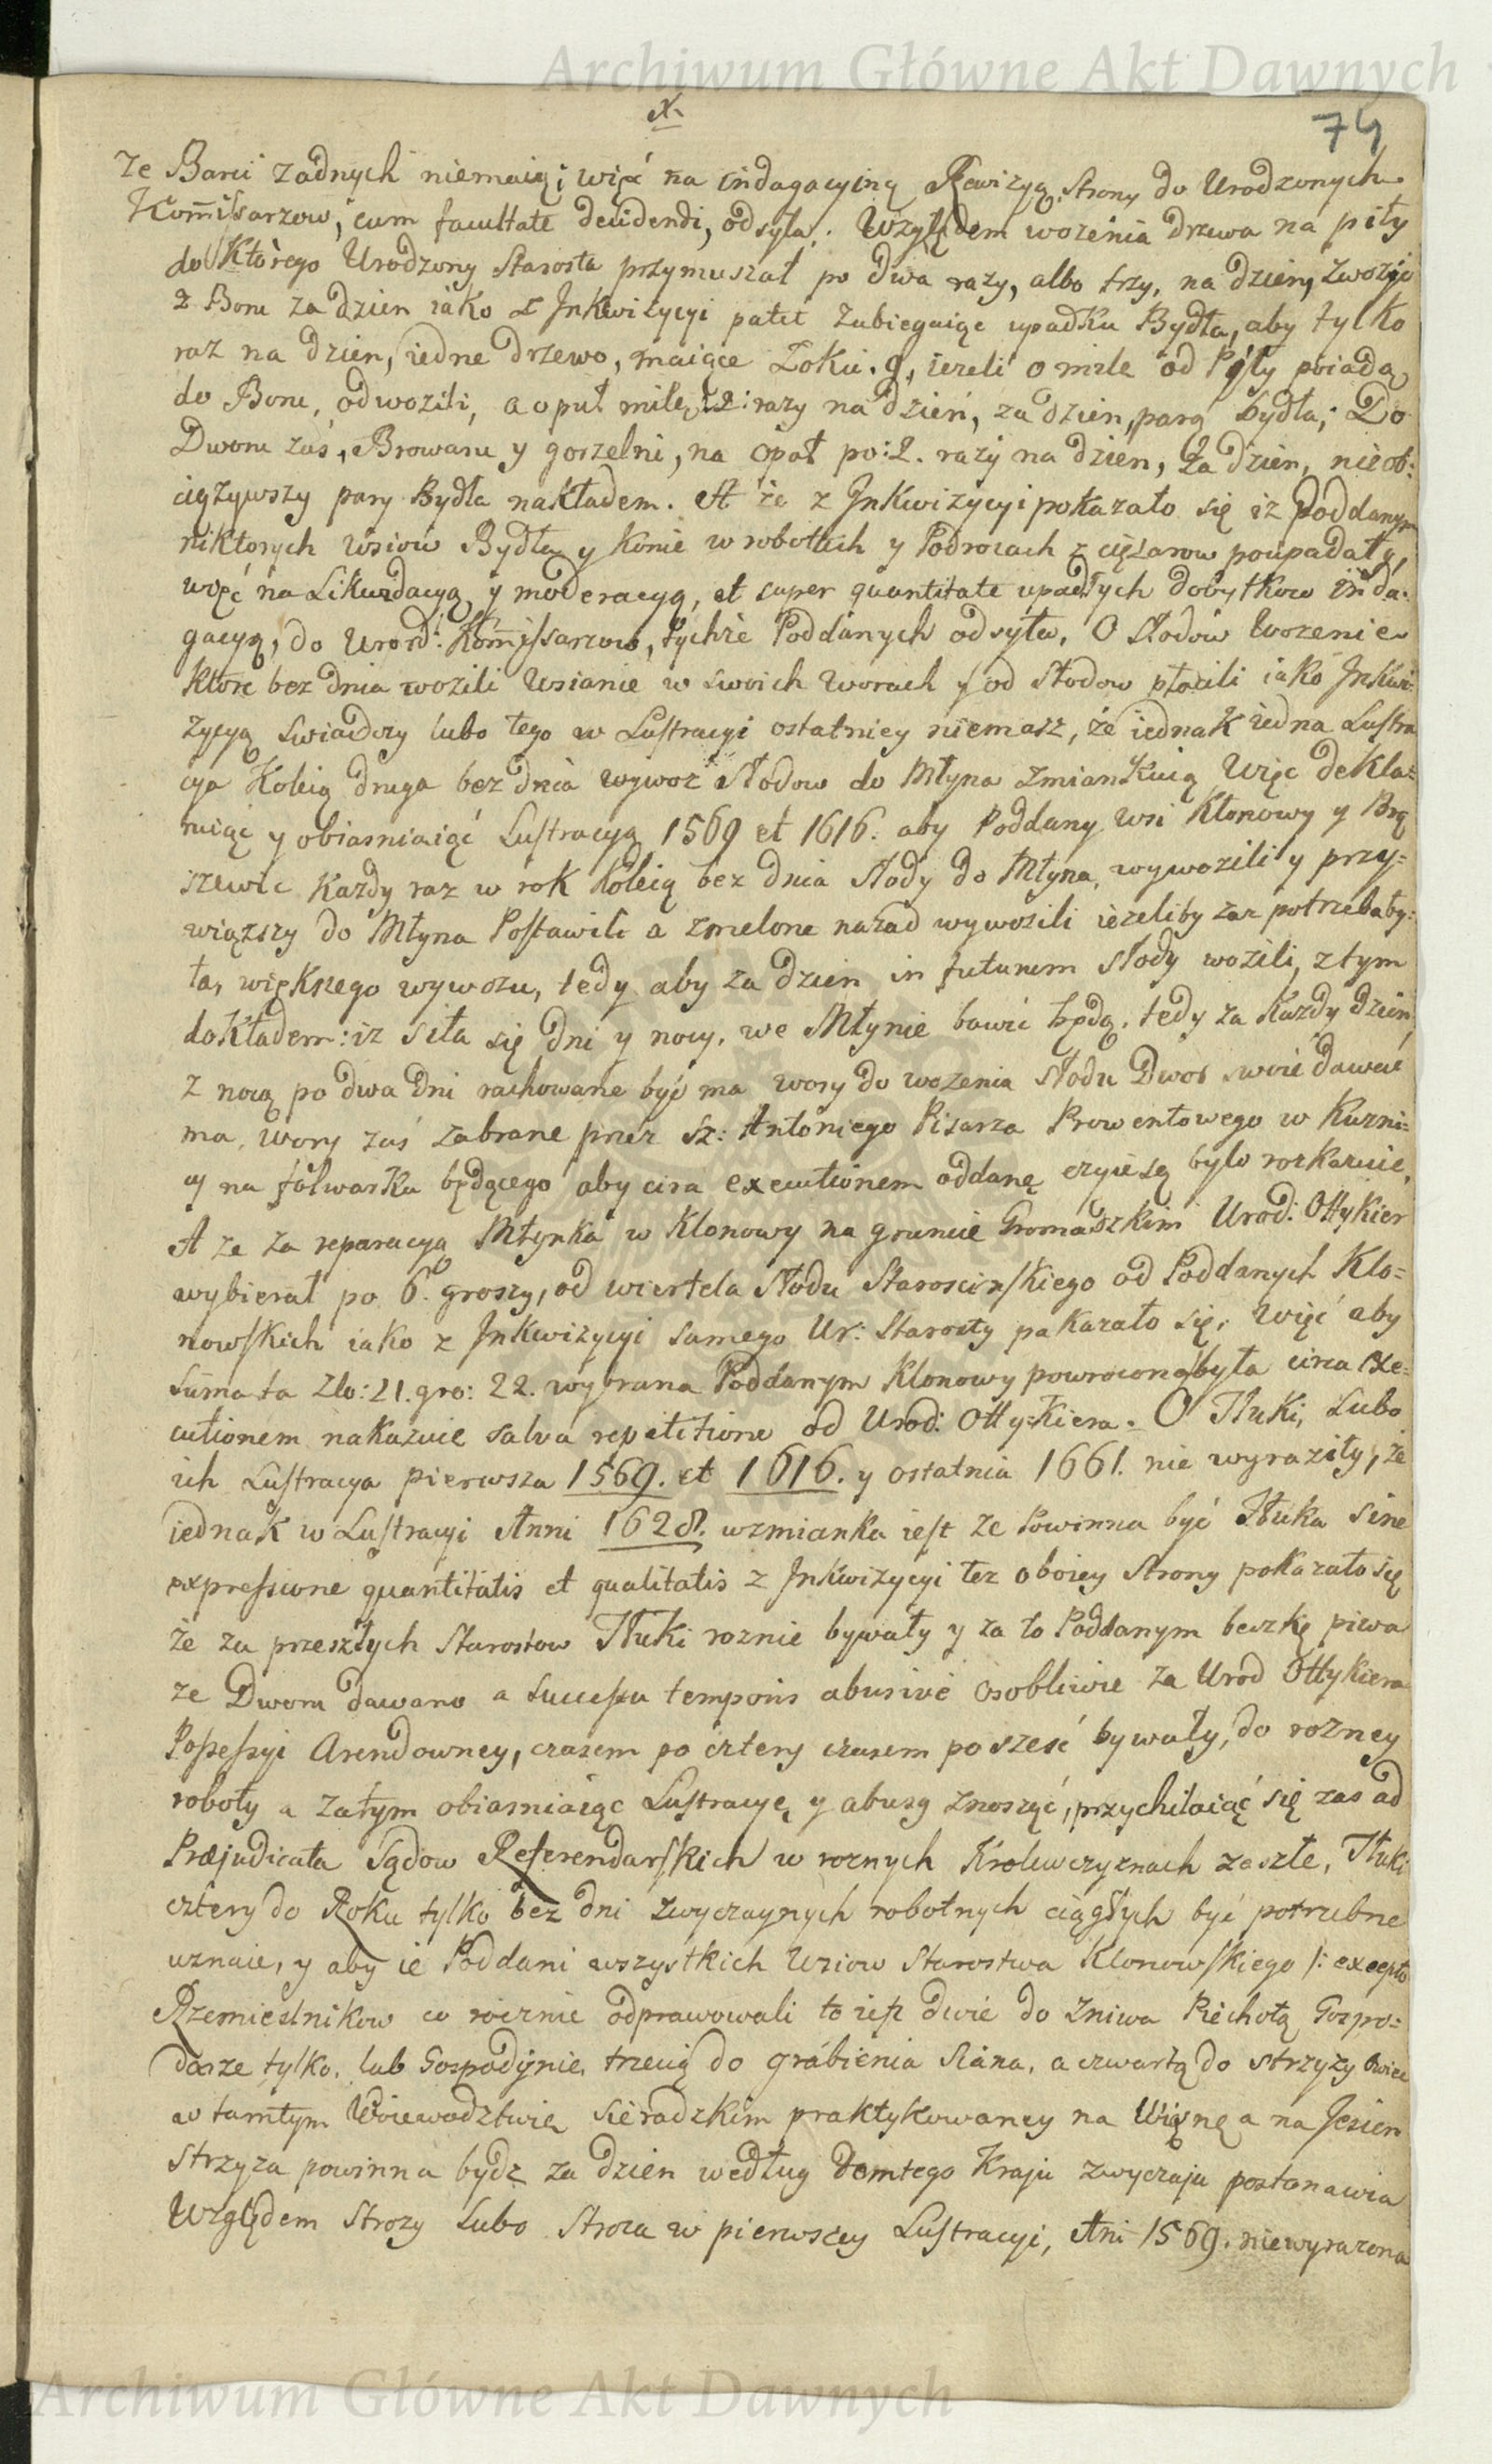 Archiwum Główne Akt Dawnych
X.
74
ze Barci zadnych niemaią; więc na indagacyiną Rewizyą, Strony do Urodzonych
Kom̃isarzow, cum facultate decidendi, odsyła: Względem wożenia drzewa na piły
do Którego Urodzony Starosta przymuszał po dwa razy, albo trzy, na dzien, zwozić
z Boru za dzien iako z Inkwizycyi patet zabiegaiąc upadku Bydła, aby tylko
raz na dzien, iedne drzewo, maiące Łokci. 9, iezeli o mile od Piły poiadą
do Boru, odwozili, a o puł milę 2: razy na dzień, za dzien, parą bydła; Do
Dworu zaś, Browaru y gorzelni, na opał po: 2. razy na dzien, za dzien, nie ob:
ciązywszy pary Bydła nakładem. A że z Inkwizycyi pokazało się iz Poddanym
niktorych Wsiow Bydła y Konie w robotach y Podrozach z cięzarow poupadały,
więć na Likwidacyą y moderacyą, et super quantitate upadłych dobytkow inda:
gacyą, do Urod: Kom̃issarzow, tychże Poddanych odsyła, O Słodow Wozenie
ktore bez dnia wozili Wsianie w swoich Worach y od Słodow płacili iako Inkwi:
zycyą swiadczy lubo tego w Lustracyi ostatniey niemasz, że iednak iedna Lustra
cya Koleią druga bez dnia wywoz Słodow do Młyna zmiankuią Więc dekla:
ruiąc y obiasniaiąć Lustracyą 1569 et 1616. aby Poddany wsi Klonowy y Brą
szewic Kazdy raz w rok Koleią bez dnia Słody do Młyna, wywozili y przy=
wiązszy do Młyna Postawili a zmelone nazad wywozili iezeliby zas potrzeba by:
ła, większego wywozu, tedy aby za dzien in futurum Słody wozili, z tym
dokładem: iz siła się dni y nocy, we Młynie bawić będą, tedy za Kazdy dzien
z nocą po dwa dni rachowane być ma wory do wozenia Słodu Dwor swoie dawać
ma, Wory zaś zabrane przez Sz: Antoniego Pisarza Prowentowego w Kuzni=
cy na folwarku będącego aby circa executionem oddanę czyie są było rozkazuie,
A ze za reparacyą Młynka w Klonowy na gruncie Gromaszkim Urod: Ottykier
wybierał po 6. groszy, od wiertela Słodu Staroscinskiego od Poddanych Klo=
nowskich iako z Inkwizycyi samego Ur: Starosty pakazało się, Więć aby
Suma ta Zło: 21. gro: 22. wybrana Poddanym Klonowy powroconą była circa exe=
cutionem nakazuie salva repetitione od Urod: Ottykiera. O Tłuki, Lubo
ich Lustracya pierwsza 1569. et 1616. y ostatnia 1661. nie wyraziły, że
iednak w Lustracyi Anni 1628. wzmianka iest ze Powinna być Tłuka sine
expressione quantitatis et qualitatis z Inkwizycyi tez oboiey strony pokazało się
że za przeszłych Starostow Tłuki roznie bywały y za to Poddanym beczkę piwa
ze Dworu dawano a successu temporis abusive osobliwie za Urod Ottykiera
Possessyi Arendowney, czasem po cztery czasem po sześć bywały, do rozney
roboty a zatym obiasniaiąc Lustracyę y abusy znosząć, przychilaiąć się zas ad
Præjudicata Sądow Referendarskich w roznych Krolewczyznach zaszłe, Tłuki
cztery do Roku tylko bez dni zwyczaynych robotnych ciągłych być potrzebne
uznaie, y aby ie Poddani wszystkich Wsiow Starostwa Klonowskiego /: excepto
Rzemieslnikow co rocznie odprawowali to iest dwie do Zniwa Piechotą Gospo=
darze tylko, lub Gospodynie, trzecią do grabienia Siana, a czwartą do strzyzy Owiec
w tamtym Woiewodztwie sieradzkim praktykowaney na Wiosnę a na Jesien
Strzyza powinna bydz za dzien według Tamtego Kraju zwyczaju postanawia
Względem Strozy Lubo Stroza w pierwszey Lustracyi, Ani 1569. niewyrazona
Archiwum Główne Akt Dawnych